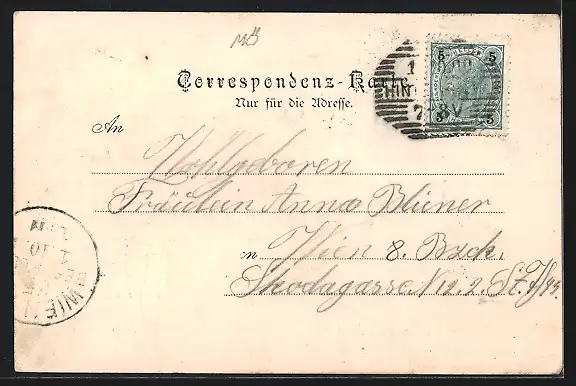 Correspondenz-Karte
Nur für die Adresse.
5 5
5 5
An
Wohlgeboren
Fräulein Anna Blüner
in Wien 8. Bzck.
Skodagasse No 2.
WIEN